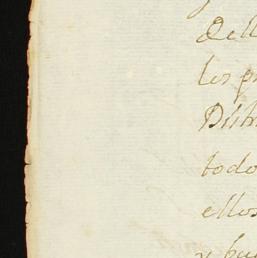 Dell
los p
Distr
todo
ellos
y bu